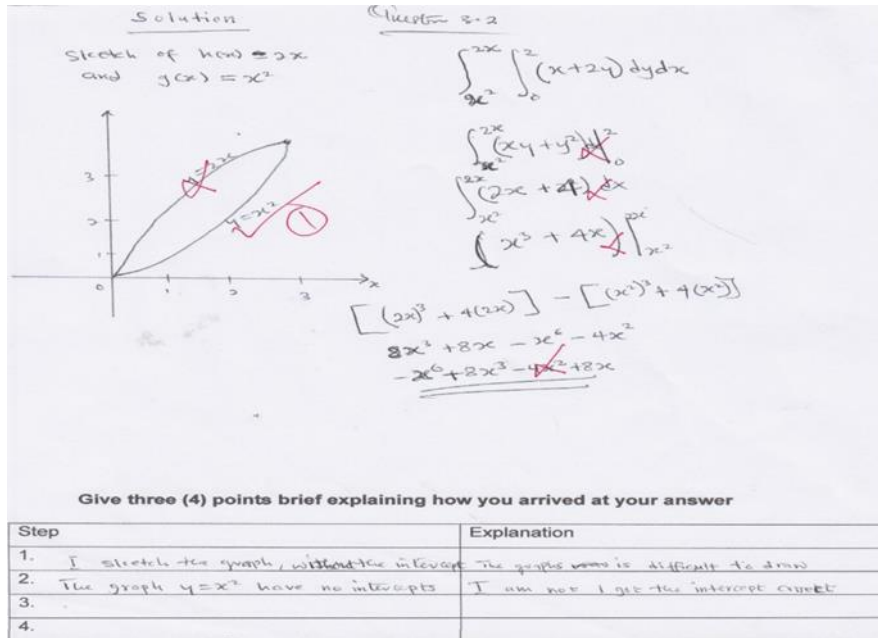 Solution
Question 3.2
Sketch of h(x) = 2x
and g(x) = x²
3
2
1
0
1
2
3
x
y=2x
y=x²
1
∫_{x²}^{2x} ∫_0^2 (x+2y) dy dx
∫_{x²}^{2x} (xy+y²) |_0^2
∫_{x²}^{2x} (2x + 4) dx
( x³ + 4x ) |_{x²}^{2x}
[(2x)³ + 4(2x)] - [(x²)³ + 4(x²)]
8x³ + 8x - x⁶ - 4x²
-x⁶ + 8x³ - 4x² + 8x
Give three (4) points brief explaining how you arrived at your answer
Step Explanation
1. I sketch the graph, without the intercept The graphs is difficult to draw
2. The graph y = x² have no intercepts I am not I get the intercept correct
3.
4.